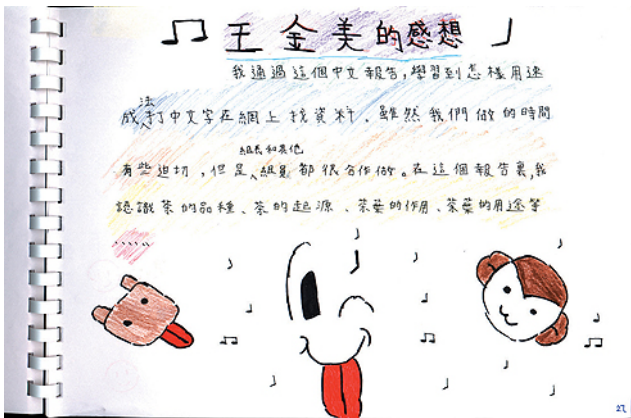 王金美的感想
我通過這個中文報告,學習到怎樣用速
成法打中文字在網上找資料。雖然我們做的時間
有些迫切,但是組長和其他組員都很合作做。在這個報告裏,我
認識茶的品種、茶的起源、茶葉的作用、茶葉的用途等
……
27